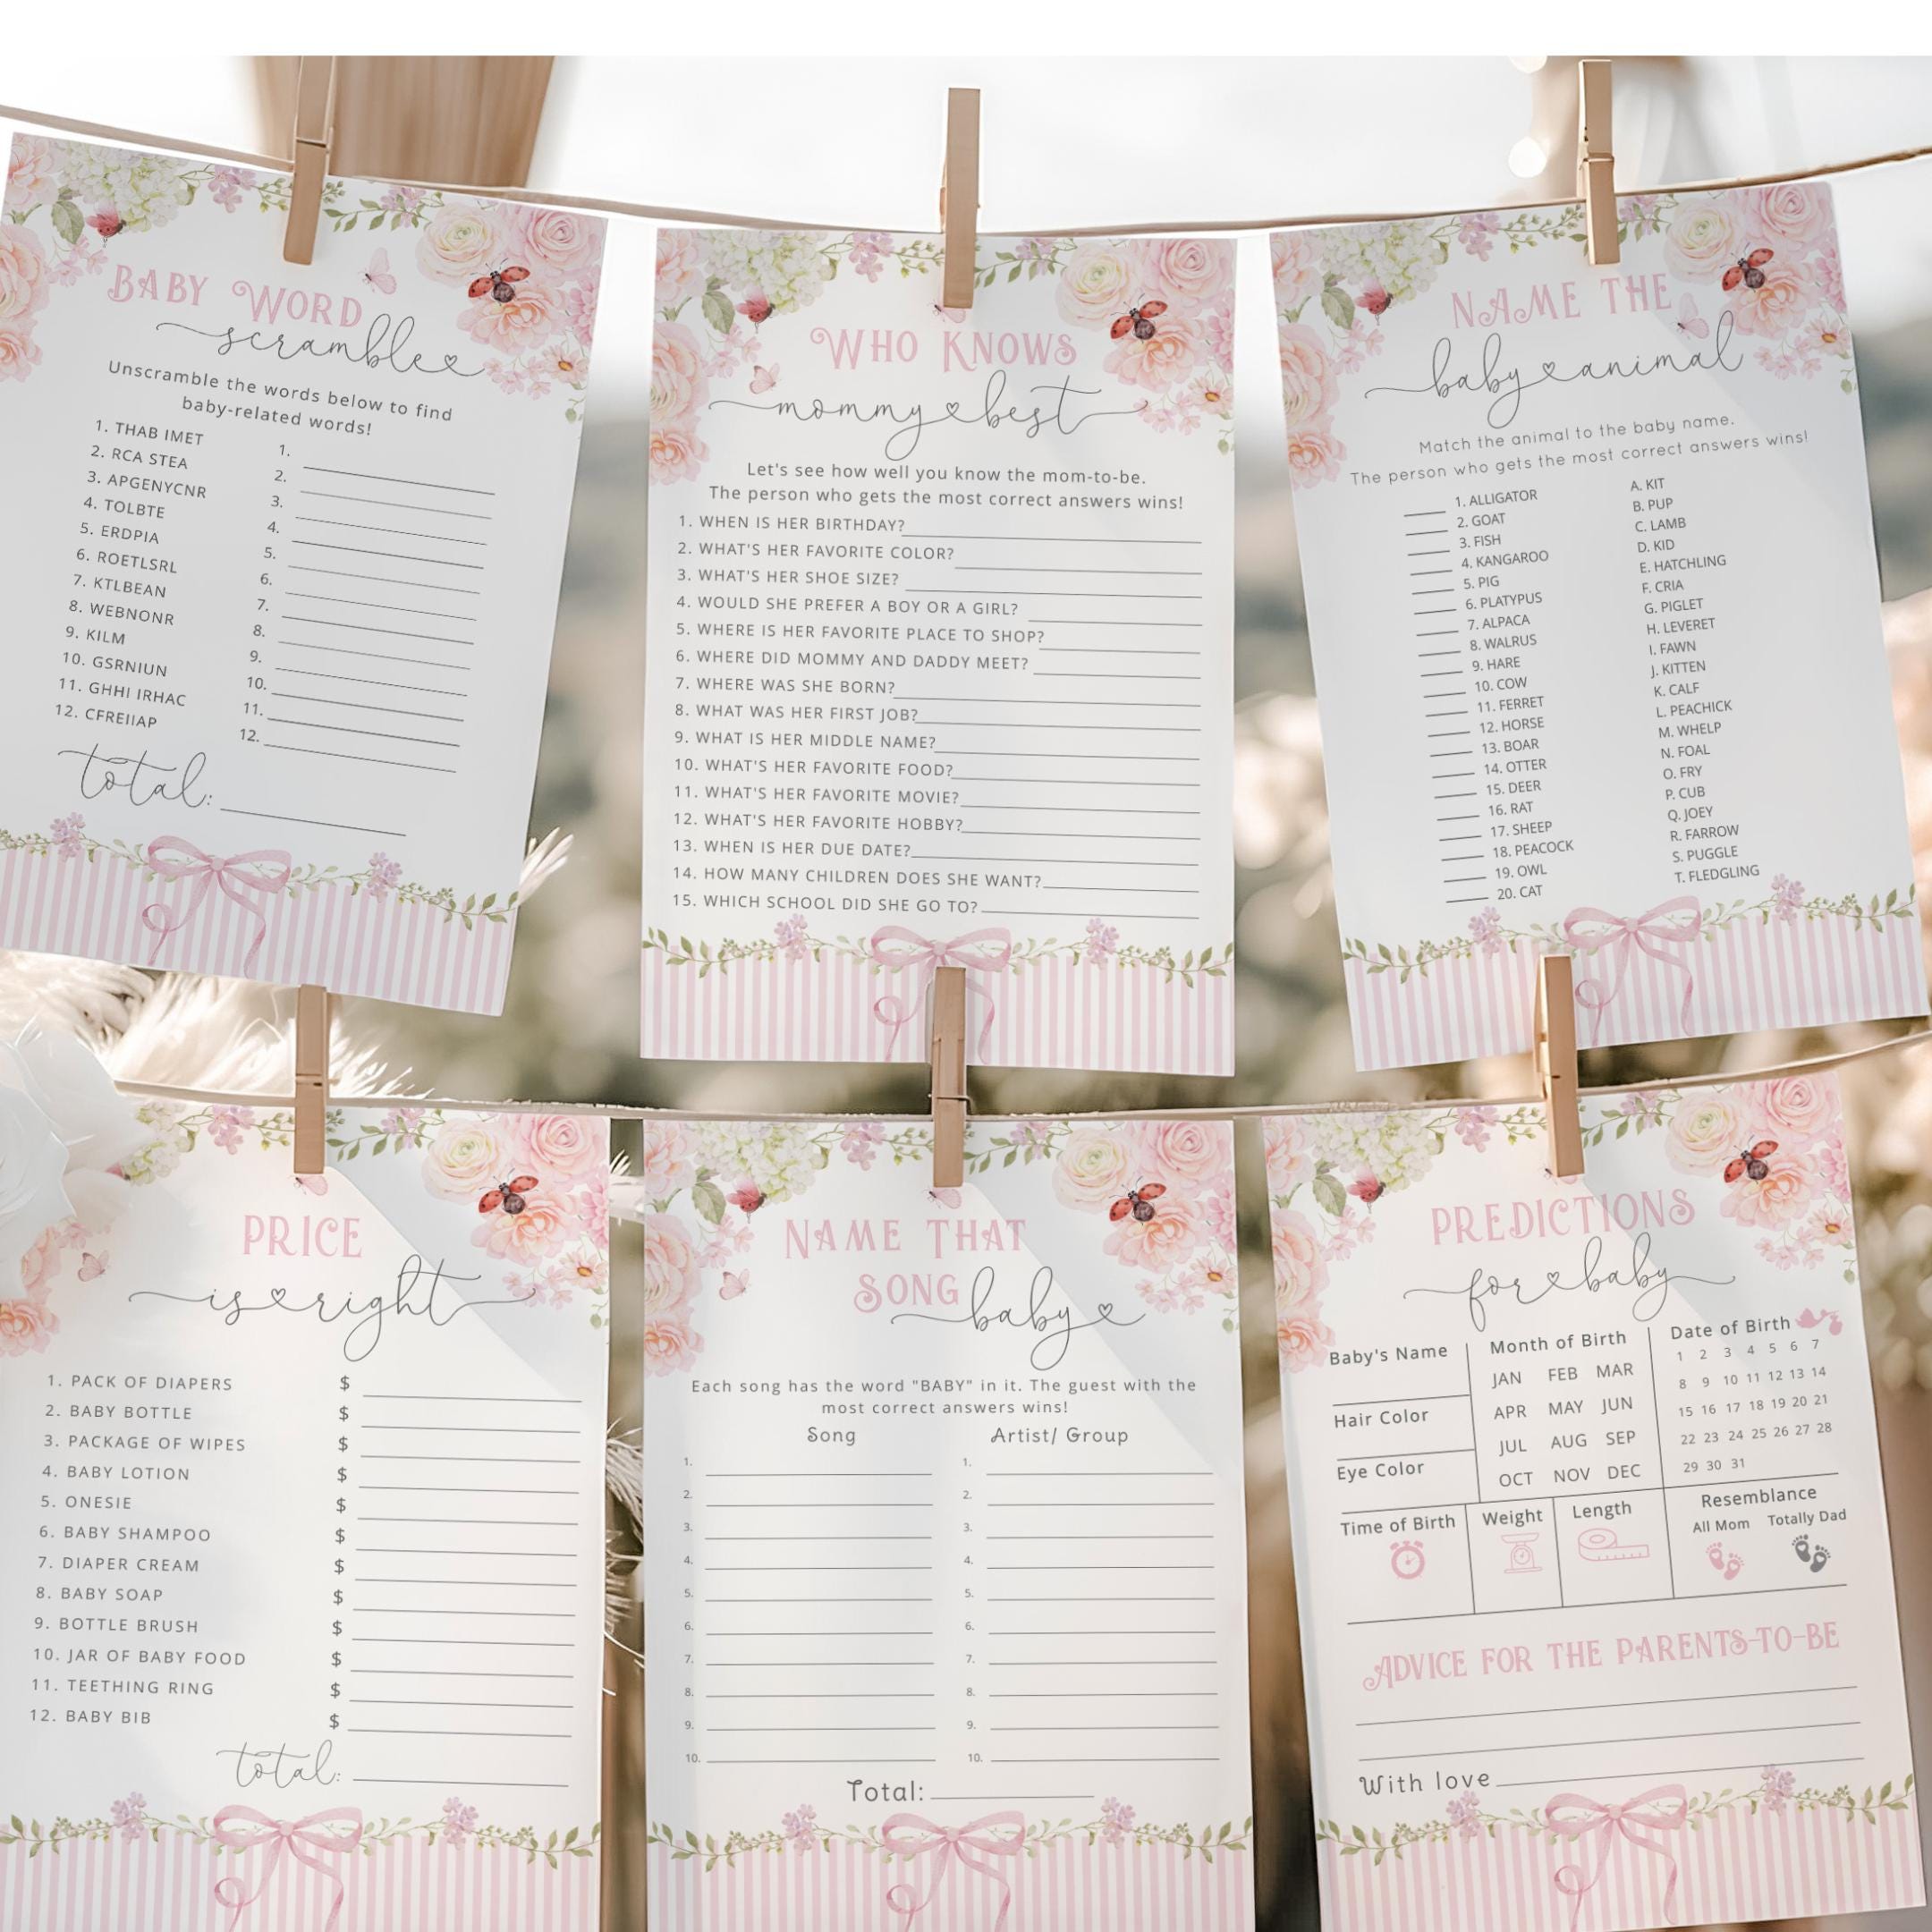 BABY WORD
scramble
Unscramble the words below to find
baby-related words!
1. THAB IMET 1.
2. RCA STEA 2.
3. APGENYCNR 3.
4. TOLBTE 4.
5. ERDPIA 5.
6. ROETLSRL 6.
7. KTLBEAN 7.
8. WEBNONR 8.
9. KILM 9.
10. GSRNIUN 10.
11. GHHI IRHAC 11.
12. CFREIIAP 12.
total:
WHO KNOWS
mommy best
Let's see how well you know the mom-to-be.
The person who gets the most correct answers wins!
1. WHEN IS HER BIRTHDAY?
2. WHAT'S HER FAVORITE COLOR?
3. WHAT'S HER SHOE SIZE?
4. WOULD SHE PREFER A BOY OR A GIRL?
5. WHERE IS HER FAVORITE PLACE TO SHOP?
6. WHERE DID MOMMY AND DADDY MEET?
7. WHERE WAS SHE BORN?
8. WHAT WAS HER FIRST JOB?
9. WHAT IS HER MIDDLE NAME?
10. WHAT'S HER FAVORITE FOOD?
11. WHAT'S HER FAVORITE MOVIE?
12. WHAT'S HER FAVORITE HOBBY?
13. WHEN IS HER DUE DATE?
14. HOW MANY CHILDREN DOES SHE WANT?
15. WHICH SCHOOL DID SHE GO TO?
NAME THE
baby animal
Match the animal to the baby name.
The person who gets the most correct answers wins!
1. ALLIGATOR A. KIT
2. GOAT B. PUP
3. FISH C. LAMB
4. KANGAROO D. KID
5. PIG E. HATCHLING
6. PLATYPUS F. CRIA
7. ALPACA G. PIGLET
8. WALRUS H. LEVERET
9. HARE I. FAWN
10. COW J. KITTEN
11. FERRET K. CALF
12. HORSE L. PEACHICK
13. BOAR M. WHELP
14. OTTER N. FOAL
15. DEER O. FRY
16. RAT P. CUB
17. SHEEP Q. JOEY
18. PEACOCK R. FARROW
19. OWL S. PUGGLE
20. CAT T. FLEDGLING
PRICE
is right
1. PACK OF DIAPERS $
2. BABY BOTTLE $
3. PACKAGE OF WIPES $
4. BABY LOTION $
5. ONESIE $
6. BABY SHAMPOO $
7. DIAPER CREAM $
8. BABY SOAP $
9. BOTTLE BRUSH $
10. JAR OF BABY FOOD $
11. TEETHING RING $
12. BABY BIB $
total:
NAME THAT
SONG baby
Each song has the word "BABY" in it. The guest with the
most correct answers wins!
Song Artist/ Group
1. 1.
2. 2.
3. 3.
4. 4.
5. 5.
6. 6.
7. 7.
8. 8.
9. 9.
10. 10.
Total:
PREDICTIONS
for baby
Baby's Name Month of Birth Date of Birth
JAN FEB MAR 1 2 3 4 5 6 7
Hair Color APR MAY JUN 8 9 10 11 12 13 14
JUL AUG SEP 15 16 17 18 19 20 21
Eye Color OCT NOV DEC 22 23 24 25 26 27 28
29 30 31
Time of Birth Weight Length Resemblance
All Mom Totally Dad
ADVICE FOR THE PARENTS-TO-BE
With love